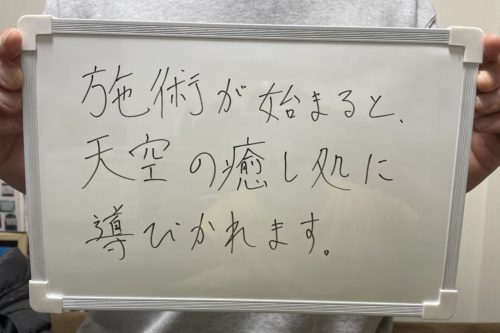 施術が始まると、
天空の癒し処に
導びかれます。